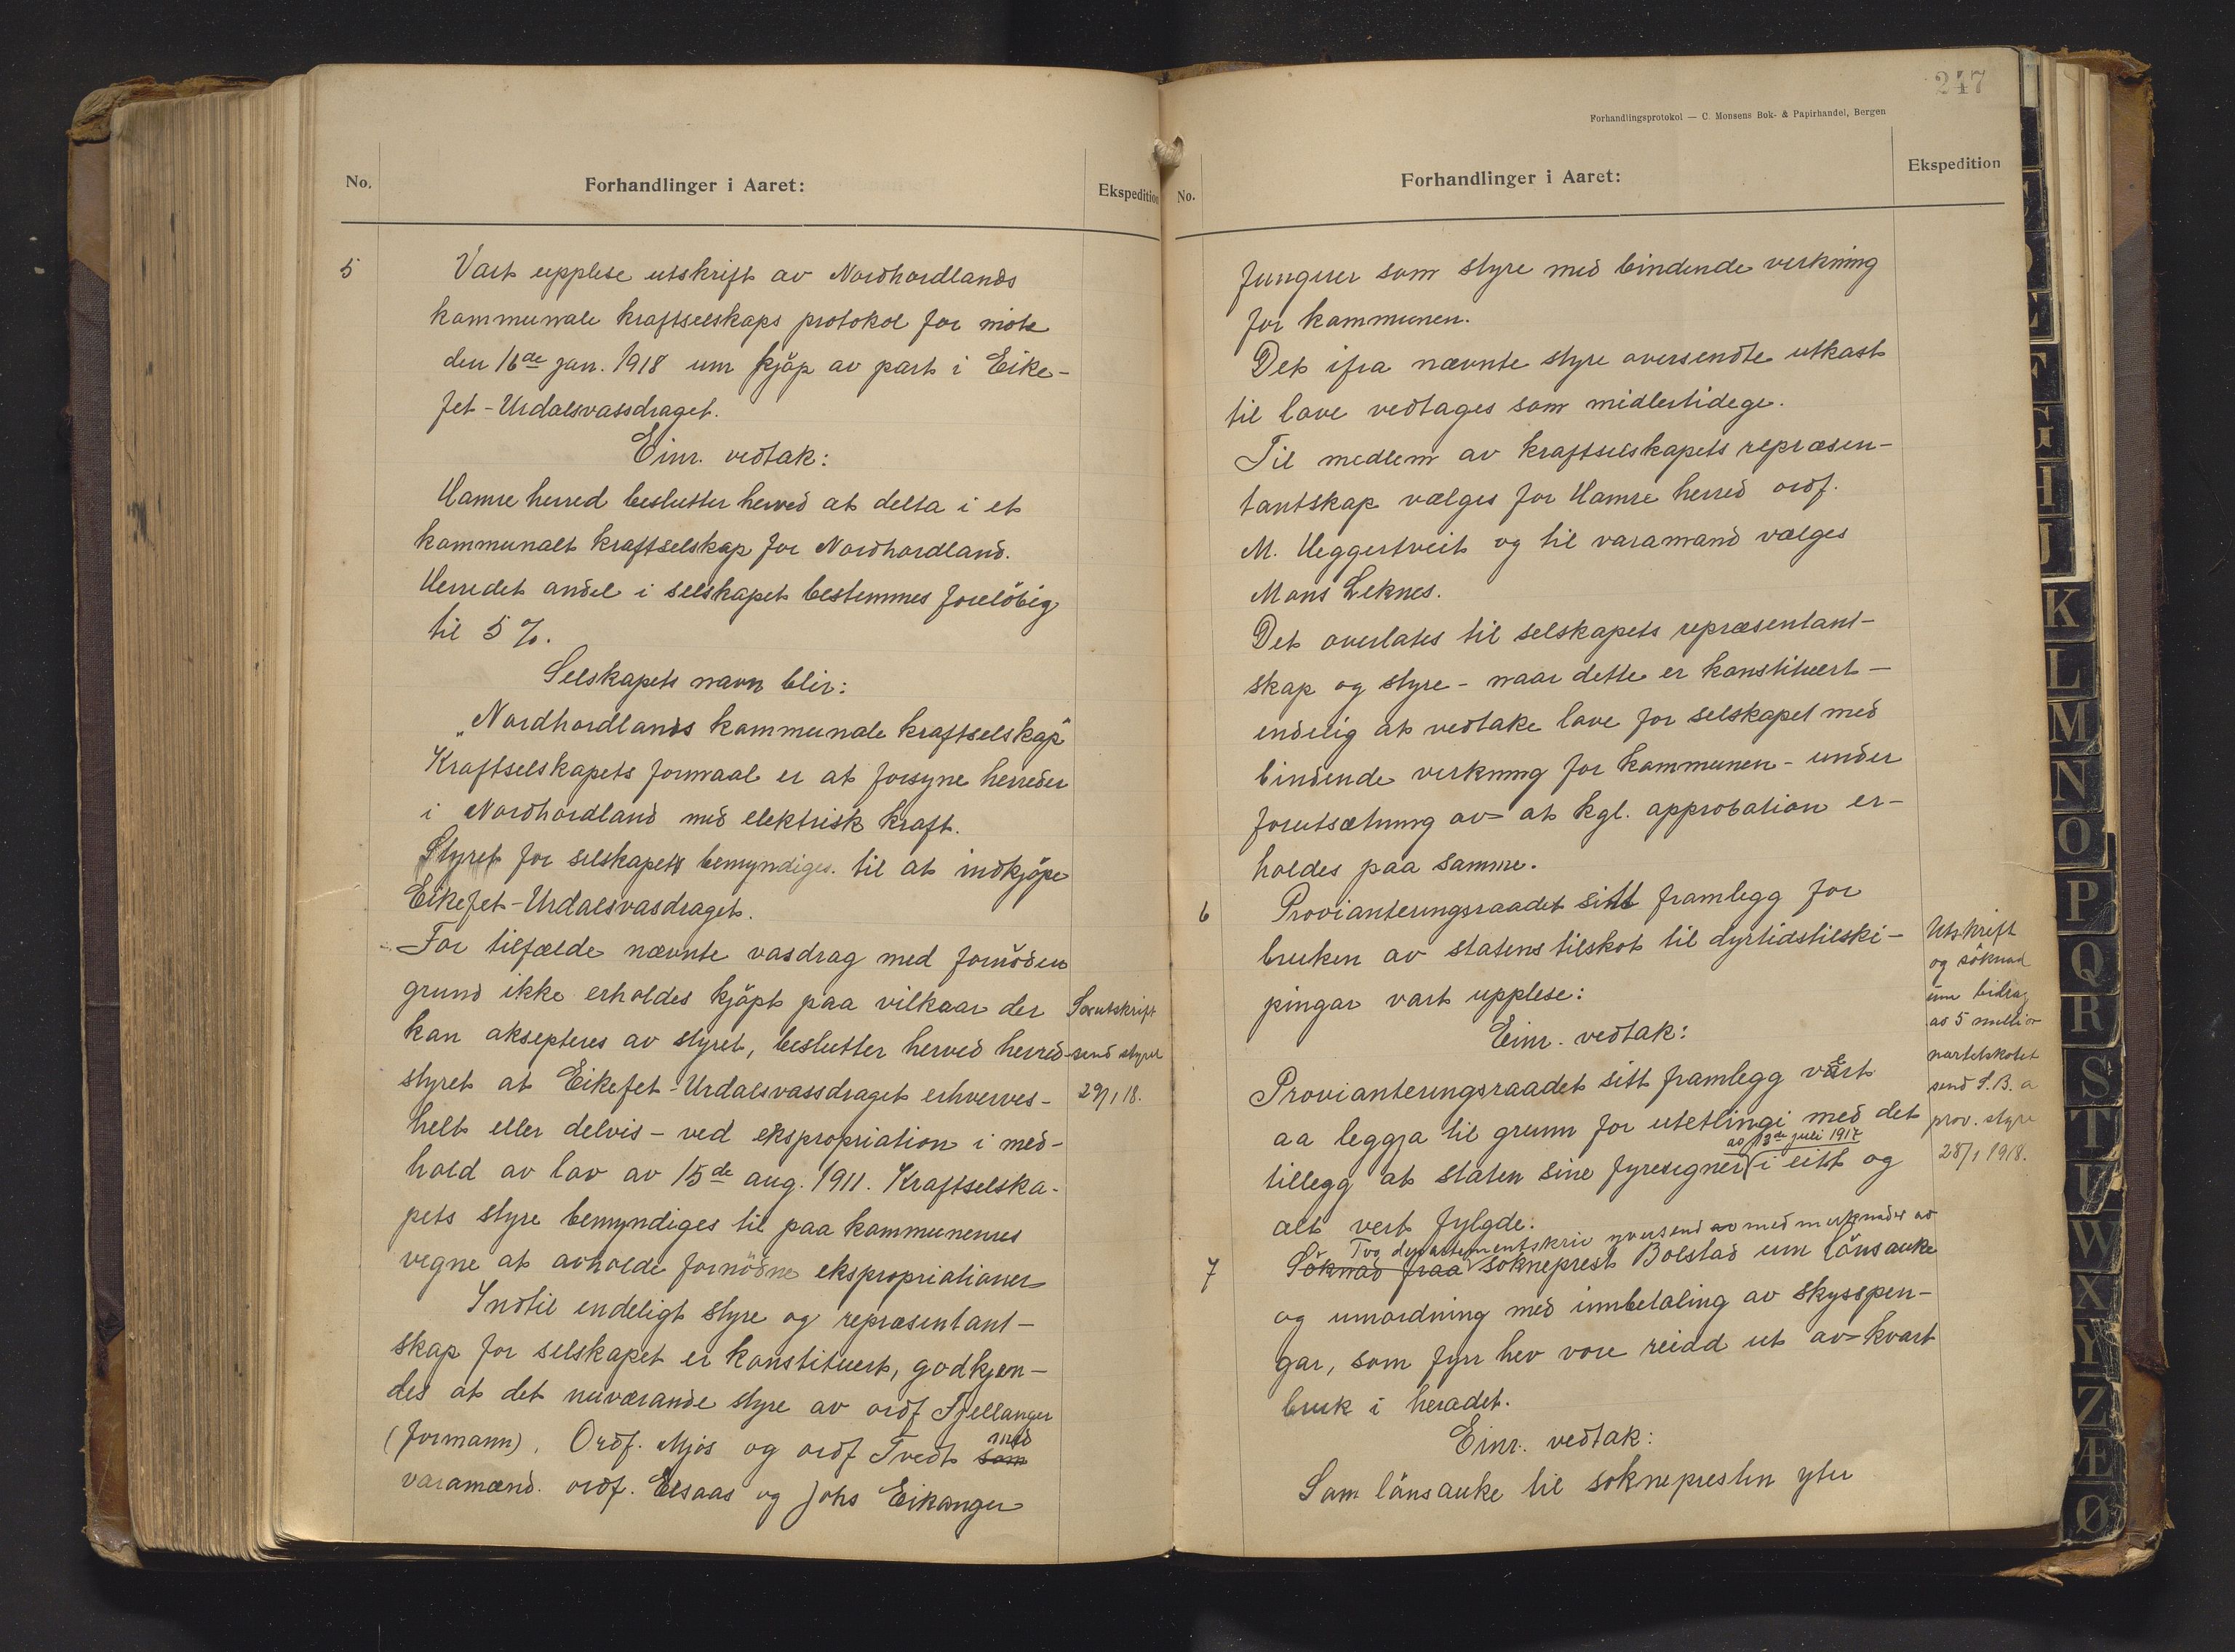 No.
Forhandlinger i Aaret:
Ekspedition
5
Vart upplese utskrift av Nordhordlands
kommunale kraftselskaps protokol for møte
den 16de jan. 1918 um kjöp av part i Eike-
fet-Urdalsvassdraget.
Einr. vedtak:
Hamre herred beslutter herved at delta i et
kommunalt kraftselskap for Nordhordland.
Herredet andel i selskapet bestemmes forelöbig
til 5 %.
Selskapets navn blir:
„Nordhordlands kommunale kraftselskap"
Kraftselskapets formaal er at forsyne herreder
i Nordhordland med elektrisk kraft.
Styret for selskapets bemyndiges til at indkjöpe
Eikefet-Urdalsvasdraget.
For tilfælde nævnte vasdrag med fornöden
grund ikke erholdes kjöpt paa vilkaar der
kan aksepteres av styret, beslutter herved herred-
styret at Eikefet-Urdalsvassdraget erhverves-
helt eller delvis - ved ekspropriation i med-
hold av lov av 15de aug. 1911. Kraftselska-
pets styre bemyndiges til paa kommunenes
vegne at avholde fornödne ekspropriationer
Indtil endeligt styre og repræsentant-
skap for selskapet er konstituert, godkjen-
des at det nuværande styre av ordf Fjellanger
(formann), Ordf. Mjøs og ordf Tvedt som med
varamænd. ordf. Elsaas og Johs Eikanger
Særutskrift
send styret
29/1 18.
247
Forhandlingsprotokol — C. Monsens Bok- & Papirhandel, Bergen
No.
Forhandlinger i Aaret:
Ekspedition
fungerer som styre med bindende verkning
for kommunen.
Det ifra nævnte styre oversendte utkast
til love vedtages som midlertidege.
Til medlem av kraftselskapets repræsen-
tantskap vælges for Hamre herred ordf.
M. Heggertveit og til varamand vælges
Mons Leknes.
Det overlates til selskapets repræsentant-
skap og styre - naar dette er konstituert -
endelig at vedtake love for selskapet med
bindende verkning for kommunen - under
forutsætning av at kgl. approbation er-
holdes paa samme.
6
Provianteringsraadet sitt framlegg for
bruken av statens tilskot til dyrtidstilski-
pingar vart upplese:
Einr. vedtak:
Provianteringsraadet sitt framlegg vert
aa leggja til grunn for utetlingi med det
av 13de juli 1917
tillegg at staten sine fyresegner i eitt og
alt vert fylgde.
Utskrift
og söknad
um bidrag
av 5 million
send S.B. a
prov. styre
28/1 1918.
Tvo departementskriv yversend av med merknader av
7
Söknad fraa sokneprest Bolstad um lönsauke
og umordning med innbetaling av skysspen-
gar, som fyrr hev vore reidd ut av kvart
bruk i heradet.
Einr. vedtak:
Som lönsauke til soknepresten yter
K
L
M
N
O
P
Q
R
S
T
U
W
X
Y
Z
Æ
Ø